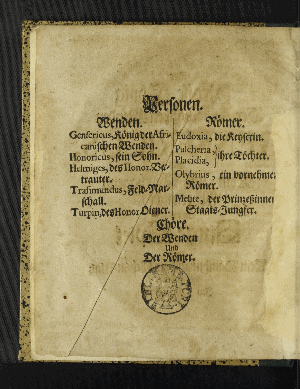 Personen.
Wenden.
Gensericus, König der Afri-
canischen Wenden.
Honoricus, sein Sohn.
Helmiges, des Honor. Ver-
trauter.
Trasimundus, Feld-Mar-
schall.
Turpin, des Honor. Diener.
Römer.
Eudoxia, die Keyserin.
Pulcheria,
Placidia, } ihre Töchter.
Olybrius, ein vornehmer
Römer.
Melite, der Prinzeßinnen
Staats-Jungfer.
Chöre.
Der Wenden
Und
Der Römer.